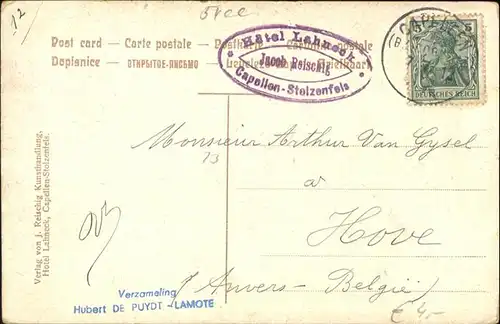 12
5fcc
Post card — Carte postale — Postkarte
Dopisnice — ОТКРЫТОЕ ПИСЬМО —
Hôtel Lahneck
Jacob Reischig
Capellen-Stolzenfels
CAPELLEN
5
DEUTSCHES REICH
Monsieur Arthur Van Gysel
à
Hove
Anvers - Belgie)
Verlag von J. Reischig Kunsthandlung,
Hotel Lahneck, Capellen-Stolzenfels.
Verzameling
Hubert DE PUYDT - LAMOTE
€ 4,-